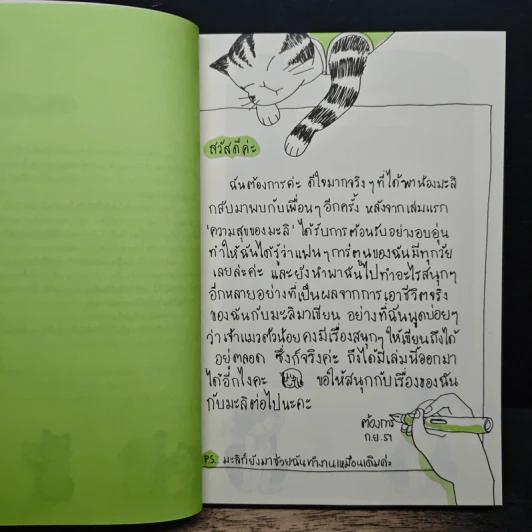 สวัสดีค่ะ
ฉันต้องการค่ะ ดีใจมากจริงๆที่ได้พาน้องมะลิ
กลับมาพบกับเพื่อนๆอีกครั้ง หลังจากเล่มแรก
'ความสุขของมะลิ' ได้รับการต้อนรับอย่างอบอุ่น
ทำให้ฉันได้รู้ว่าแฟนๆการ์ตูนของฉันมีทุกวัย
เลยล่ะค่ะ และยังนำพาฉันไปทำอะไรสนุกๆ
อีกหลายอย่างที่เป็นผลจากการเอาชีวิตจริง
ของฉันกับมะลิมาเขียน อย่างที่ฉันพูดบ่อยๆ
ว่าเจ้าแมวตัวน้อยคงมีเรื่องสนุกๆให้เขียนถึงได้
อยู่ตลอด ซึ่งก็จริงค่ะ ถึงได้มีเล่มนี้ออกมา
ได้อีกไงคะ ขอให้สนุกกับเรื่องของฉัน
กับมะลิต่อไปนะคะ
ต้องการ
ก.ย. ๕๑
PS. มะลิก็ยังมาช่วยฉันทำงานเหมือนเดิมค่ะ